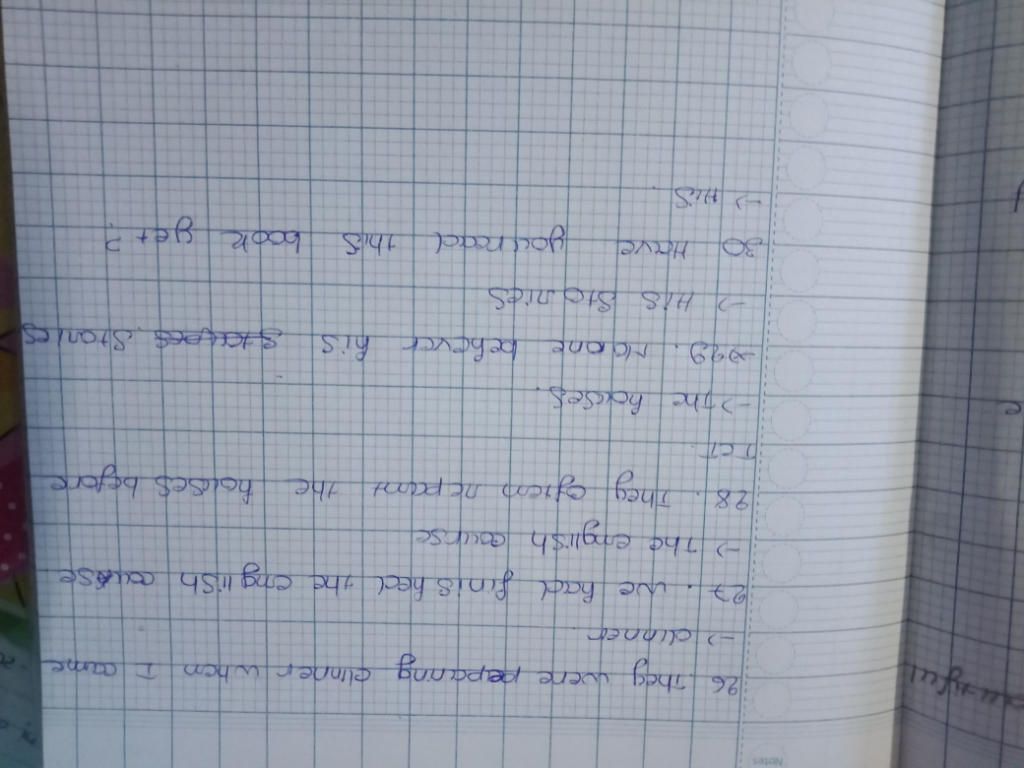 Notes
26 They were peparing dinner when I came
-> dinner.
27. We had finished the english course
-> The english course
28. They often repaint the houses before
TCT.
-> The houses.
->29. No one believer his stories
-> His stories
30 Have you read this book yet?
-> His.